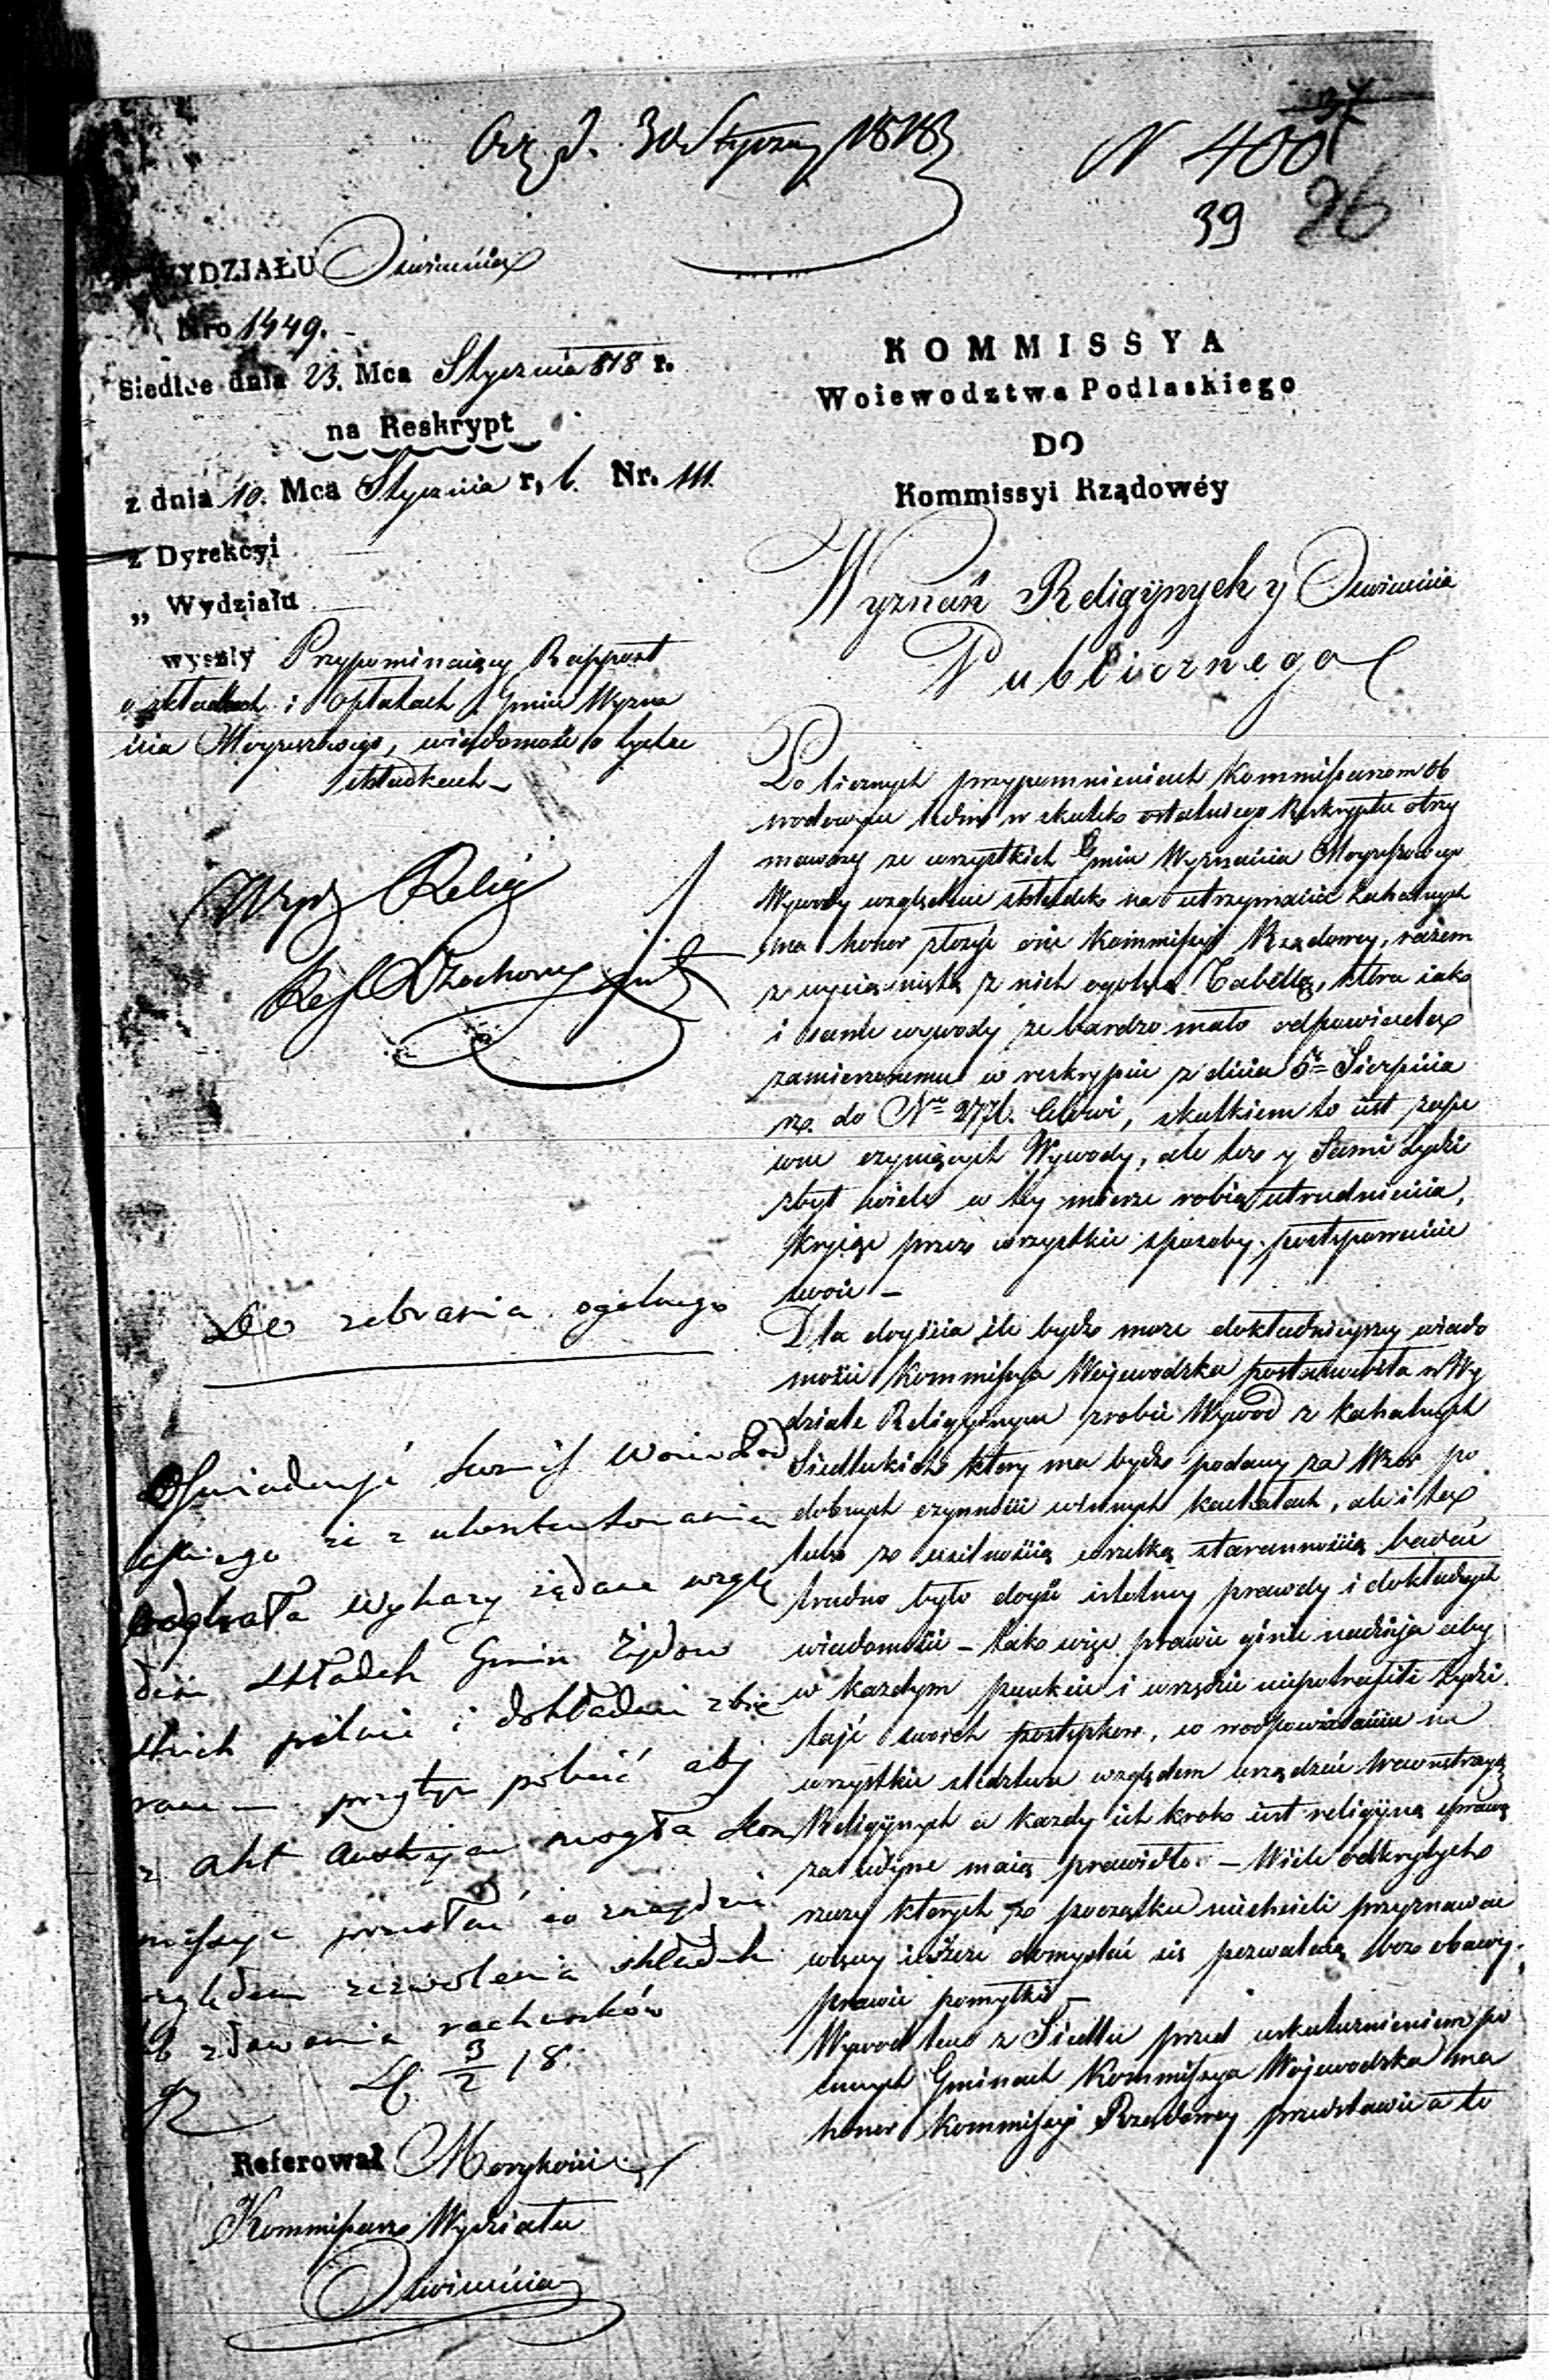 30 Stycznia 1818
N 400
39 26
WYDZIAŁU Oswiecenia
Nro 1449.
Siedlce dnia 23. Mca Stycznia 818 r.
na Reskrypt
z dnia 10. Mca Stycznia r, b. Nr. 111.
z Dyrekcyi
„ Wydziału
wyszly Przypominaiący Rapport
o składkach i Opłatach Gmin Wyzna
nia Moyzeszowego, wiadomość o tychże
składkach –
Wydz Relig
Do zebrania ogolnego
Oswiadczyć Komiss Woiew Pod
laskiego że z ukontentowania
odebrała wykazy żądane wzglę
dem składek Gmin Żydow
skich pilnie i dokładnie zbie
rane – przytym polecić aby
z akt Austryac mogła Kom
missya przesłać co znaydzie
względem zezwolenia składek
zdawania rachunków
3/2 18.
Referował
Kommissarz Wydziału
Oswiecenia
KOMMISSYA
Woiewodztwa Podlaskiego
DO
Kommissyi Rządowéy
Wyznań Religijnych y Oswiecenia
Publicznego
Po licznych przypomnieniach Kommissarzom Ob
wodowym ledwo w skutek ostatniego Reskryptu otrzy
mawszy ze wszystkich Gmin Wyznania Moyżeszowego
Wywody względem składek na utrzymanie kahalnych
ma honor złożyć one Kommissyi Rządowey, razem
z wyciągniętą z nich ogolną Tabellą, ktora iako
i same wywody że bardzo mało odpowiada
zamierzonemu w reskrypcie z dnia 5º Sierpnia
rz. do Nro 2771. Celowi, skutkiem to iest
czyniących Wywody, ale też y Sami Żydzi
zbyt wiele w tey mierze robią utrudnienia,
kryiąc przez wszystkie sposoby postępowanie
swoie –
Dla doyścia ile bydź może dokładnieyszey wiado
mości Kommissya Woyewodzka postanowiła w Wy
dziale Religiynym zrobić Wywod z kahalnych
Siedleckich ktory ma bydź podany za Wzor po
dobnych czynności w innych kahałach, ale i tu
lubo z usilnością wszelką starannością badać
trudno było doyść istotney prawdy i dokładnych
wiadomości – tak więc prawie ginie nadzieja aby
w kazdym punkcie i wszędzie niepotrafili Żydzi
taić swoich postępkow, w odpowiadaniu na
wszystkie śledztwa względem urządzeń wewnętrzny
Religiynych a kazdy ich krok iest religiyną sprawą
za iedyne maią prawidło. – Wiele odkrytych
rzeczy ktorych z początku niechcieli przyznawać
więcey ieszcze domyślać się pozwalaią bez obawy
prawie pomyłki –
Wywod ten z Siedlec przed uskutecznieniem po
innych Gminach Kommissya Woyewodzka ma
honor Kommissyi Rządowey przedstawić a to